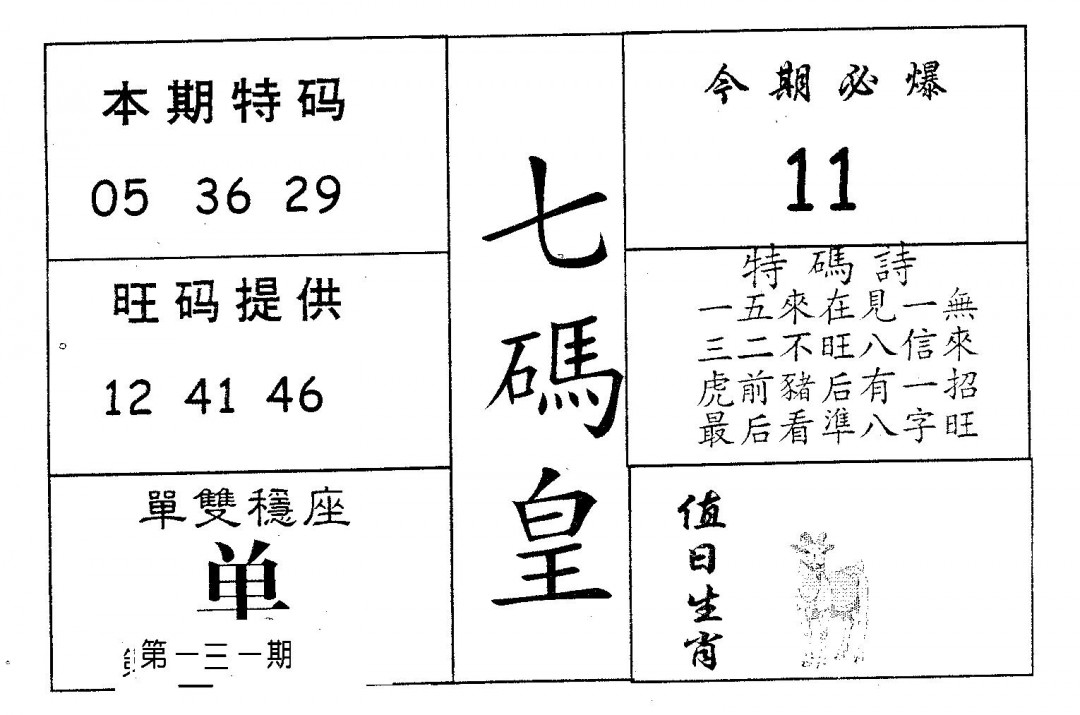 本期特码
05 36 29
旺码提供
12 41 46
單雙穩座
单
第一三一期
七
碼
皇
今期必爆
11
特碼詩
一五來在見一無
三二不旺八信來
虎前豬后有一招
最后看準八字旺
值
日
生
肖